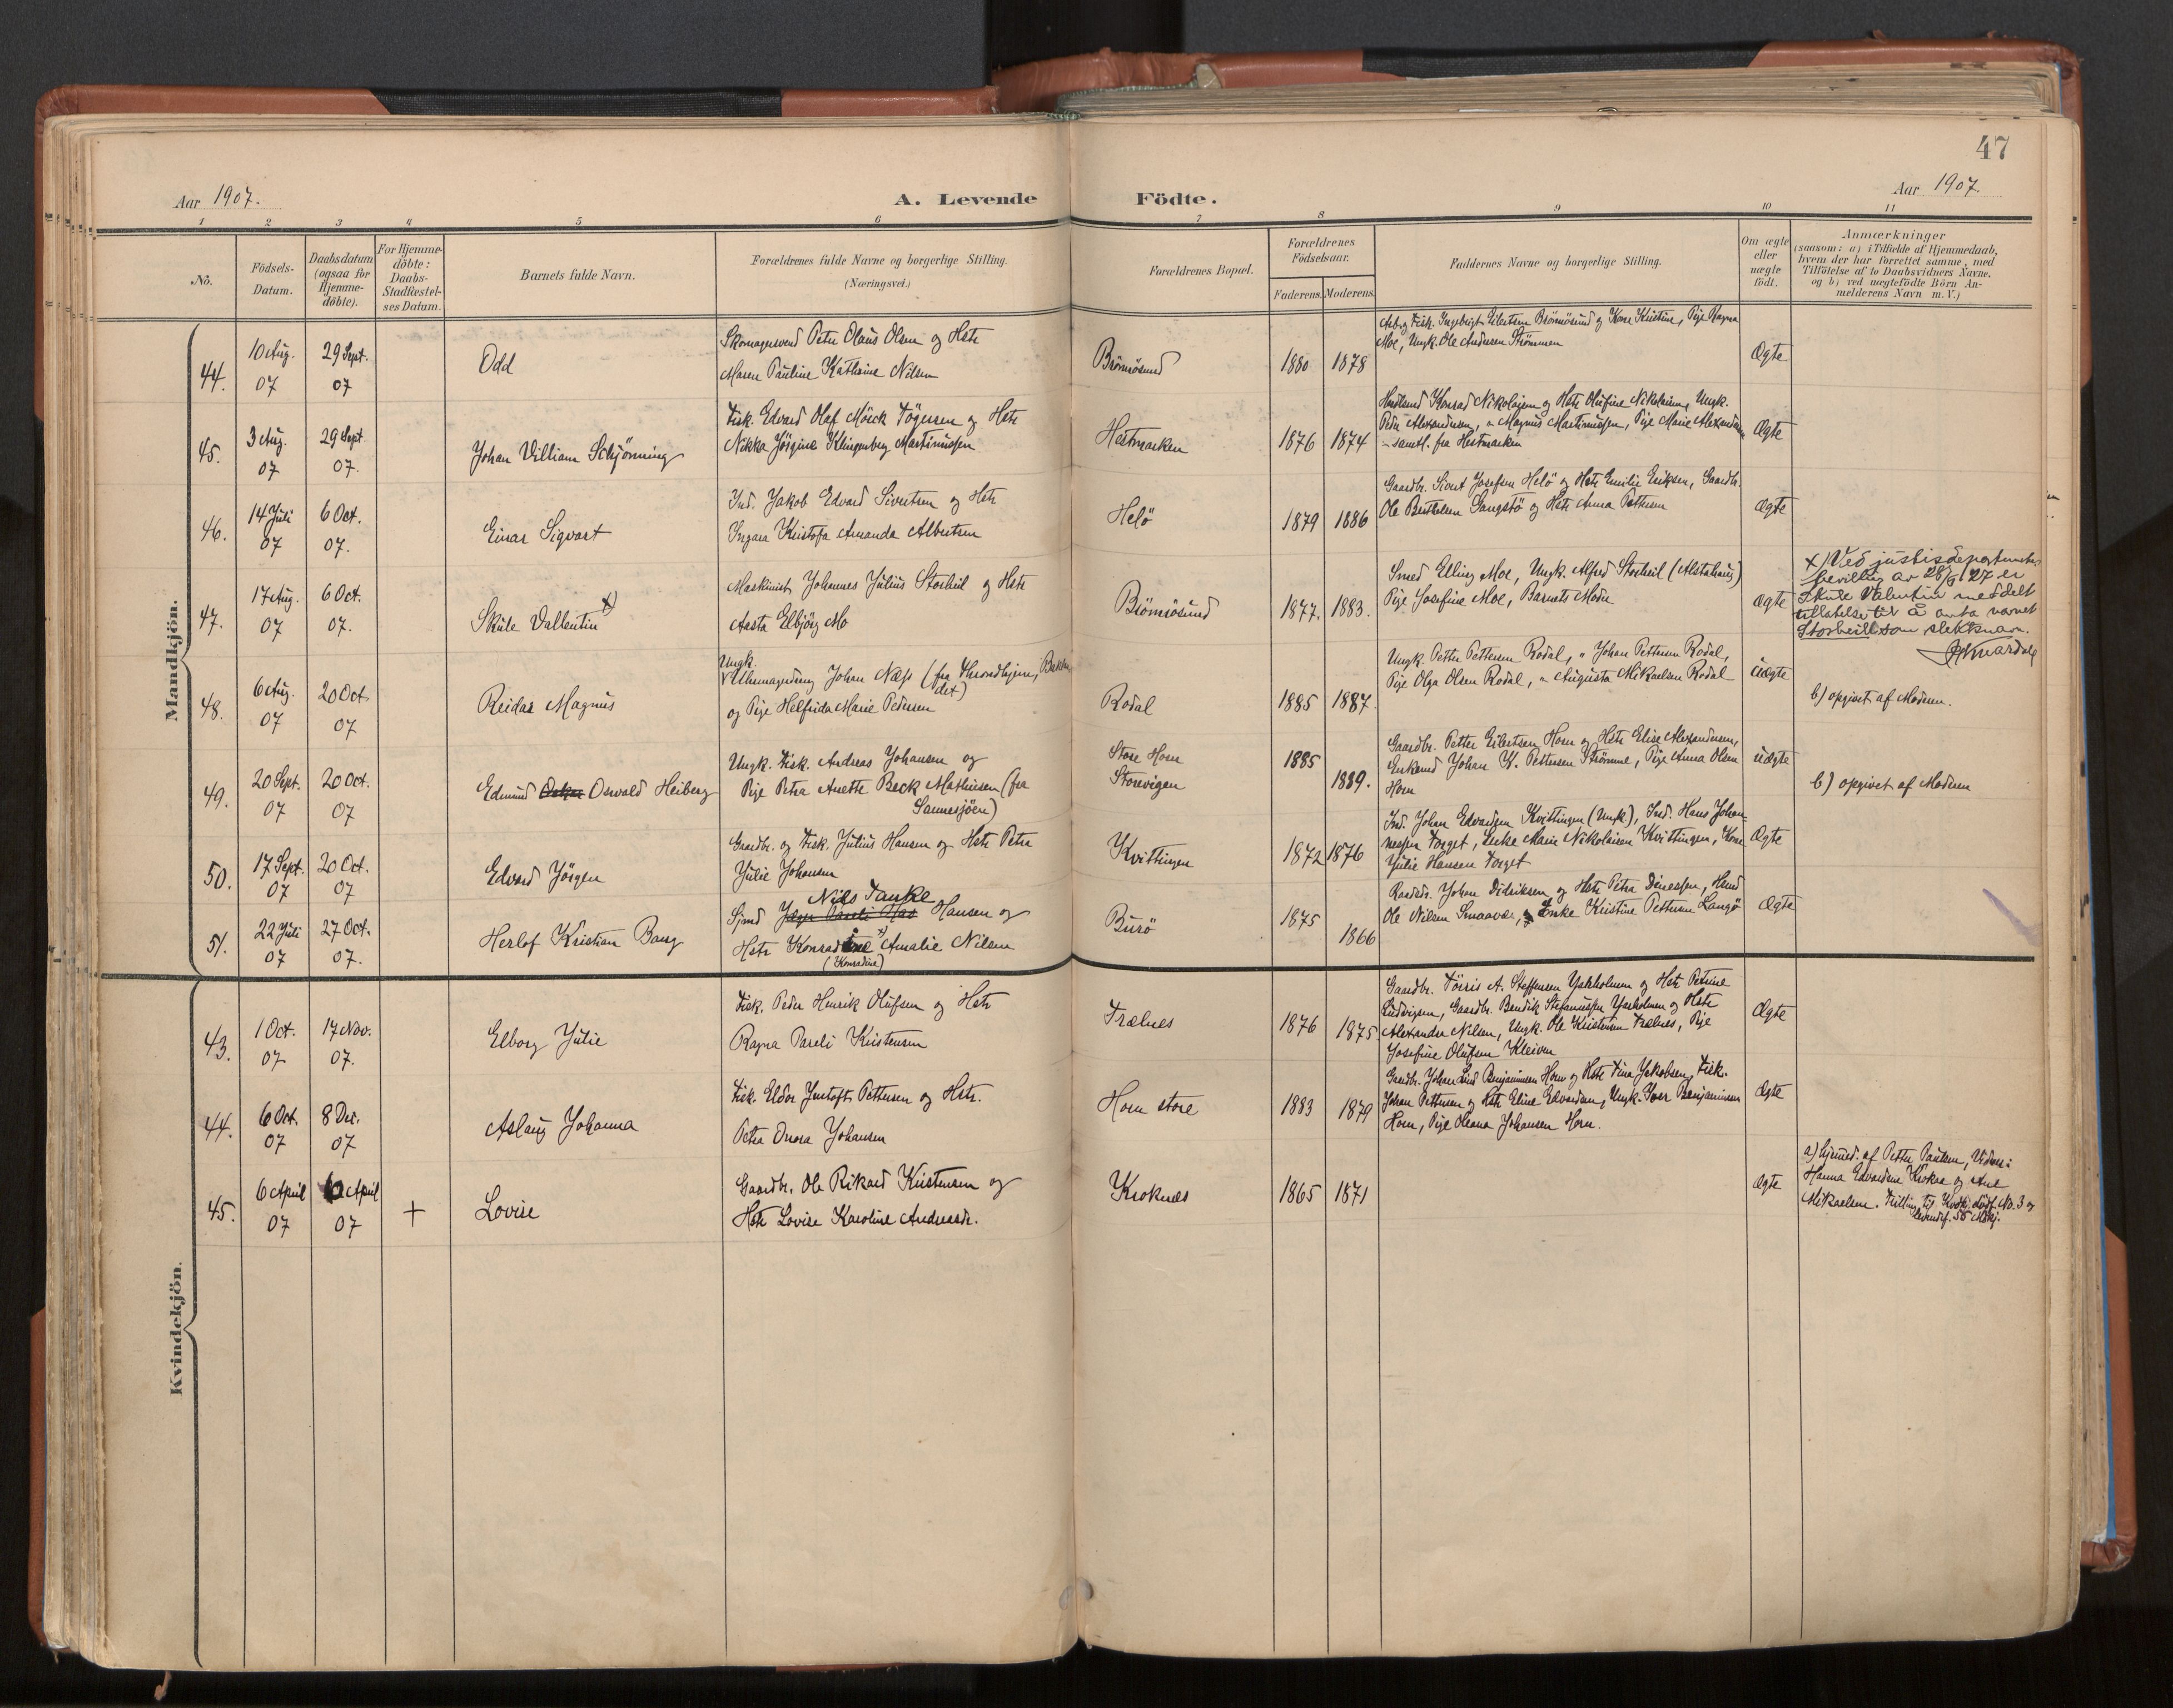 47
Aar 1907.
A. Levende Födte.
Aar 1907
1 2 3 4 5 6 7 8 9 10 11
No.
Födsels-
Datum.
Daabsdatum
(ogsaa for
Hjemme-
döbte).
For Hjemme-
döbte:
Daabs-
Stadfæstel-
ses Datum.
Barnets fulde Navn.
Forældrenes fulde Navne og borgerlige Stilling.
(Næringsvei.)
Forældrenes Bopæl.
Forældrenes
Födselsaar.
Faderens. Moderens.
Faddernes Navne og borgerlige Stilling.
Om ægte
eller
uægte
födt.
Anmærkninger
(saasom: a) i Tilfælde af Hjemmedaab,
hvem der har forrettet samme, med
Tilföielse af to Daabsvidners Navne.
og b) ved uægtefödte Börn An-
melderens Navn m. V.)
Mandkjön.
44.
10 Aug.
07
29 Sept.
07
Odd
Skomagersvend Peter Olaus Olsen og Hstr
Maren Pauline Kathrine Nilsen
Brönnösund
1880 1878
Arb. og Fisk. Ingebrigt Eilertsen Brönnösund og Kone Kristine, Pige Ragna
Moe, Ungk. Ole Andersen Strömmen
Ægte
45.
3 Aug.
07
29 Sept.
07.
Johan Villiam Schjönning
Fisk. Edvard Olaf Mörck Tögersen og Hstr
Nikka Jörgine Klingenberg Martinussen
Hestmarken
1876 1874
Konrad Nikolaisen og Hstr Olufine Nikolaisen, Ungk.
Peder Alexandersen, " Magnus Martinussen, Pige Marie Alexandersen
– samtl. fra Hestmarken
Ægte
46.
14 Juli
07
6 Oct.
07.
Einar Sigvart
Ind. Jakob Edvard Sivertsen og Hstr
Ingara Kristofa Amanda Albertsen
Helö
1879 1886
Gaardbr. Sivert Josefsen Helö og Hstr Emilie Eriksen, Gaardbr.
Ole Berthelsen Sangstö og Hstr Anna Pettersen
Ægte
47.
17 Aug.
07
6 Oct.
07.
Skule Vallentin x)
Maskinist Johannes Julius Storheil og Hstr
Aasta Elbjörg Mo
Brönnösund
1877. 1883.
Smed Elling Moe, Ungk. Alfred Storheil (Alstahaug)
Pige Josefine Moe, Barnets Moder
Ægte
x) Ved justisdepartementets
bevilling av 28/6 1927 er
Skule Valentin meddelt
tillatelse til å anta navnet
Storheill som slektsnavn.
48.
6 Aug.
07
20 Oct.
07
Reidar Magnus
Ungk.
Uhrmagerdreng Johan Næss (fra Throndhjem, Baklandet)
og Pige Helfrida Marie Pedersen
Rodal
1885 1887
Ungk. Petter Pettersen Rodal, " Johan Pettersen Rodal,
Pige Olga Olsen Rodal, " Augusta Mikaelsen Rodal
uægte
b) opgivet af Moderen.
49.
20 Sept.
07
20 Oct.
07
Edmund Oskar Osvald Heiberg
Ungk. Fisk. Andreas Johansen og
Pige Petra Anette Beck Mathisen (fra
Sannesjöen)
Store Horn
Storevigen
1885
1889.
Gaardbr. Petter Eilertsen Horn og Hstr Elise Alexandersen,
Enkemd Johan K. Pettersen Strömme, Pige Anna Olsen
Horn
uægte
b) opgivet af Moderen
50.
17 Sept.
07
20 Oct.
07
Edvard Jörgen
Gaardbr. og Fisk. Julius Hansen og Hstr Petra
Julie Johansen
Kvittingen
1872 1876
Ind. Johan Edvardsen Kvittingen (Ungk), Ind. Hans Johan-
nessen Torget, Enke Marie Nikolaisen Kvittingen, Kone
Julie Hansen Torget
Ægte
51.
22 Juli
07
27 Oct.
07.
Herlof Kristian Bang
Nils Tanke
Sjmd Hansen og
Hstr Konradine x) Amalie Nilsen
(Konradine)
Burö
1875
1866
Johan Didriksen og Hstr Petra Dinessen, Hmd
Ole Nilsen Smaavær, Enke Kristine Pettersen Langö
Ægte
Kvindekjön.
43.
1 Oct.
07
17 Nov.
07.
Elborg Julie
Fisk. Peder Henrik Olufsen og Hstr
Ragna Pareli Kristensen
Trælnes
1876 1875
Gaardbr. Törris A. Steffensen Ypholmen og Hstr Petrine
Ludvigsen, Gaardbr. Bendik Stefanussen Ypholmen og Hstr
Alexandra Nilsen, Ungk. Ole Kristensen Trælnes, Pige
Josefine Olufsen Kleiven
Ægte
44.
6 Oct.
07
8 Dec.
07
Aslaug Johanna
Fisk. Eldor Justoft Pettersen og Hstr.
Petra Onora Johansen
Horn store
1883 1879
Gaardbr. Johan Lund Benjaminsen Horn og Hstr Tina Jakobsen, Fisk.
Johan Pettersen og Hstr Eline Edvardsen, Ungk. Iver Benjaminsen
Horn, Pige Oleana Johansen Horn.
Ægte
45.
6 April
07
6 April
07
+
Lovise
Gaardbr. Ole Rikard Kristensen og
Hstr Lovise Karoline Andreasdr.
Kroknes
1865 1871
Ægte
a) hjemmed. af Petter Paulsen, Vidner:
Hanna Edvardine Krokaa og Ane
Mikaelsen. Tvilling til Kvdkj. dödf. No. 3 og
levendef. 55 Mdkj.